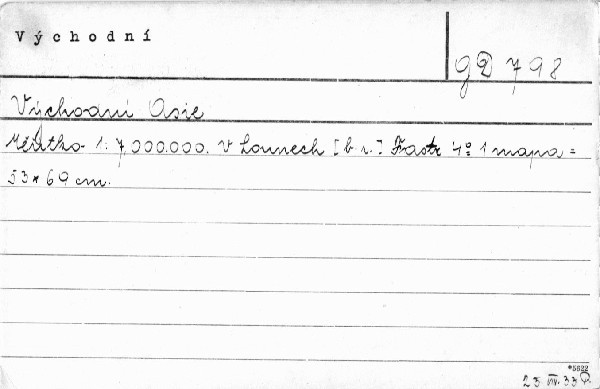 Východní
GD 798
Východní Asie
Měřítko 1:7,000.000. V Lounech [b.r.] 4° 1 mapa =
53 × 69 cm.
*5622
23 VII. 33